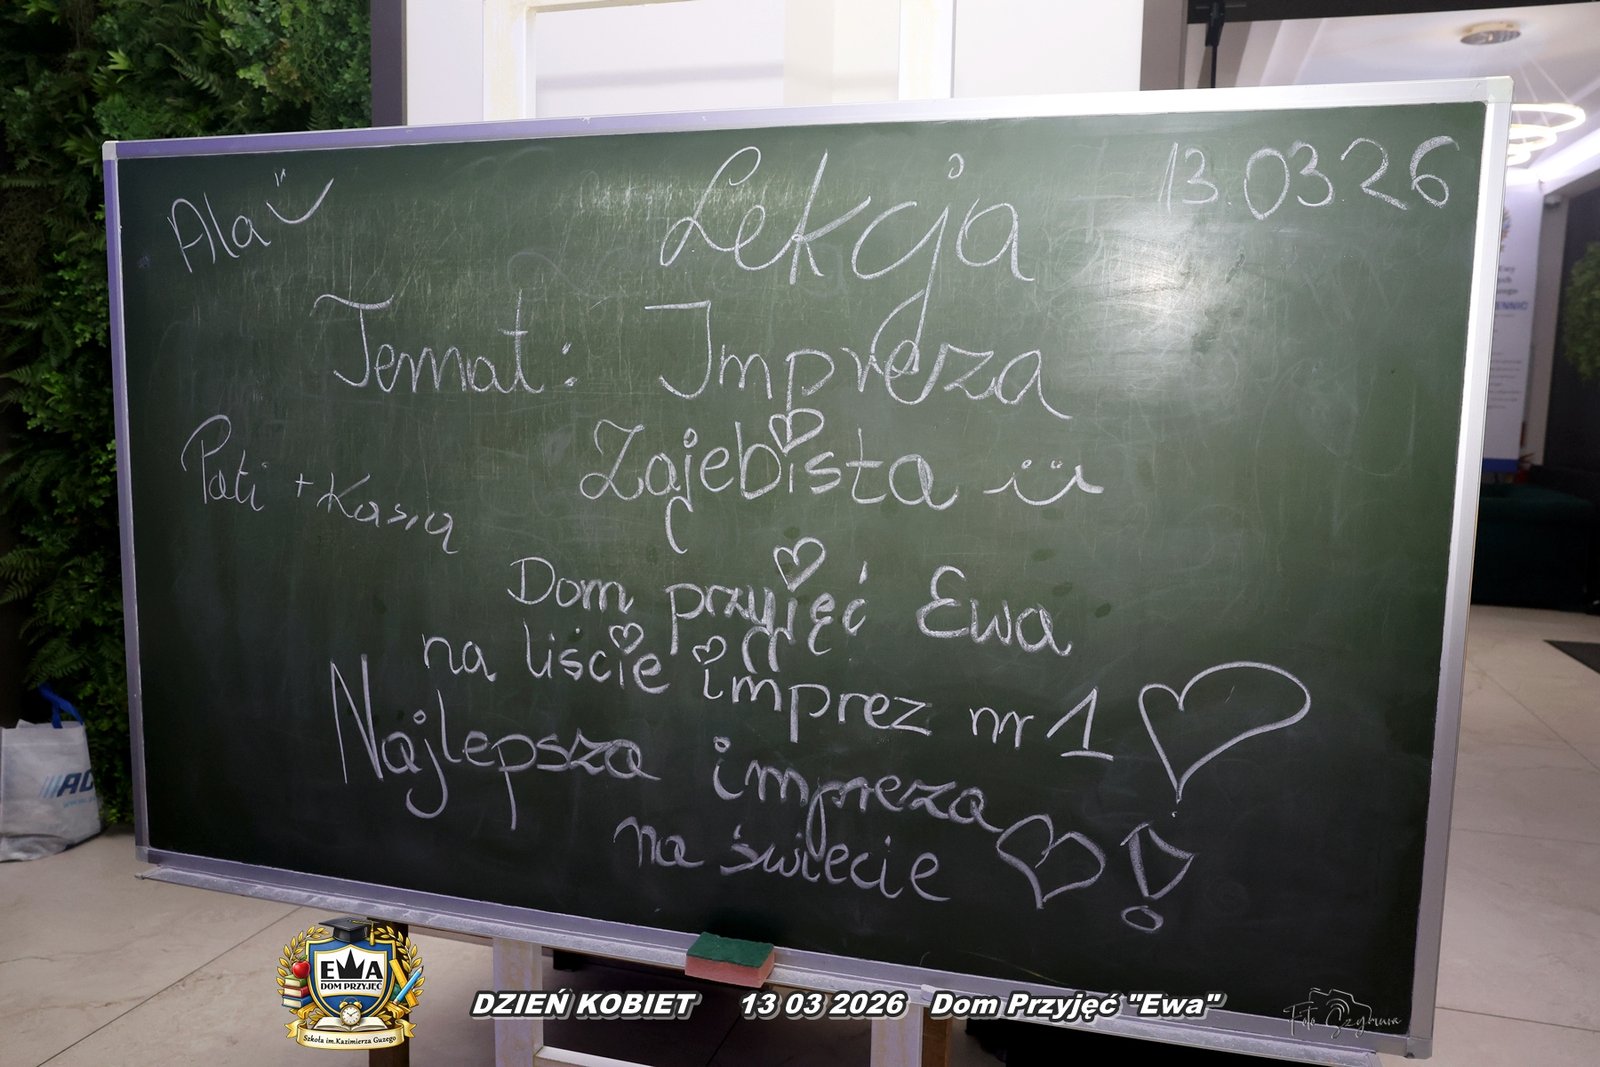 Ala
Lekcja
13.03 26
Temat: Impreza
Zajebista
Pati + Kasia
Dom przyjęć Ewa
na liście imprez nr 1
Najlepsza impreza
na świecie !
EWA
DOM PRZYJĘĆ
Szkoła im.Kazimierza Guzego
DZIEŃ KOBIET 13 03 2026 Dom Przyjęć "Ewa"
Foto Szymura